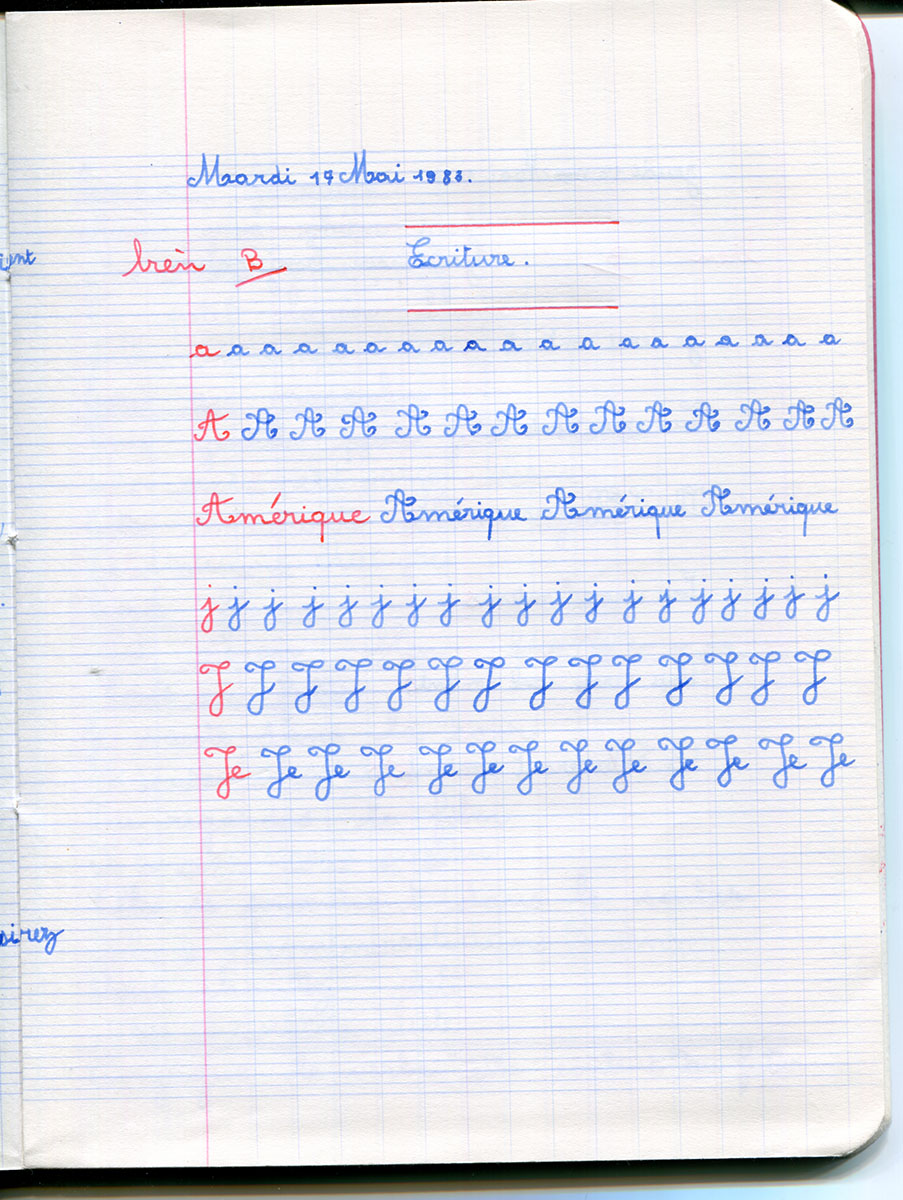 Mardi 17 Mai 1983.
bien B Ecriture.
a a a a a a a a a a a a a a a a a a a
A A A A A A A A A A A A A A
Amérique Amérique Amérique Amérique
j j j j j j j j j j j j j j j j j j j
J J J J J J J J J J J J J J
Je Je Je Je Je Je Je Je Je Je Je Je Je